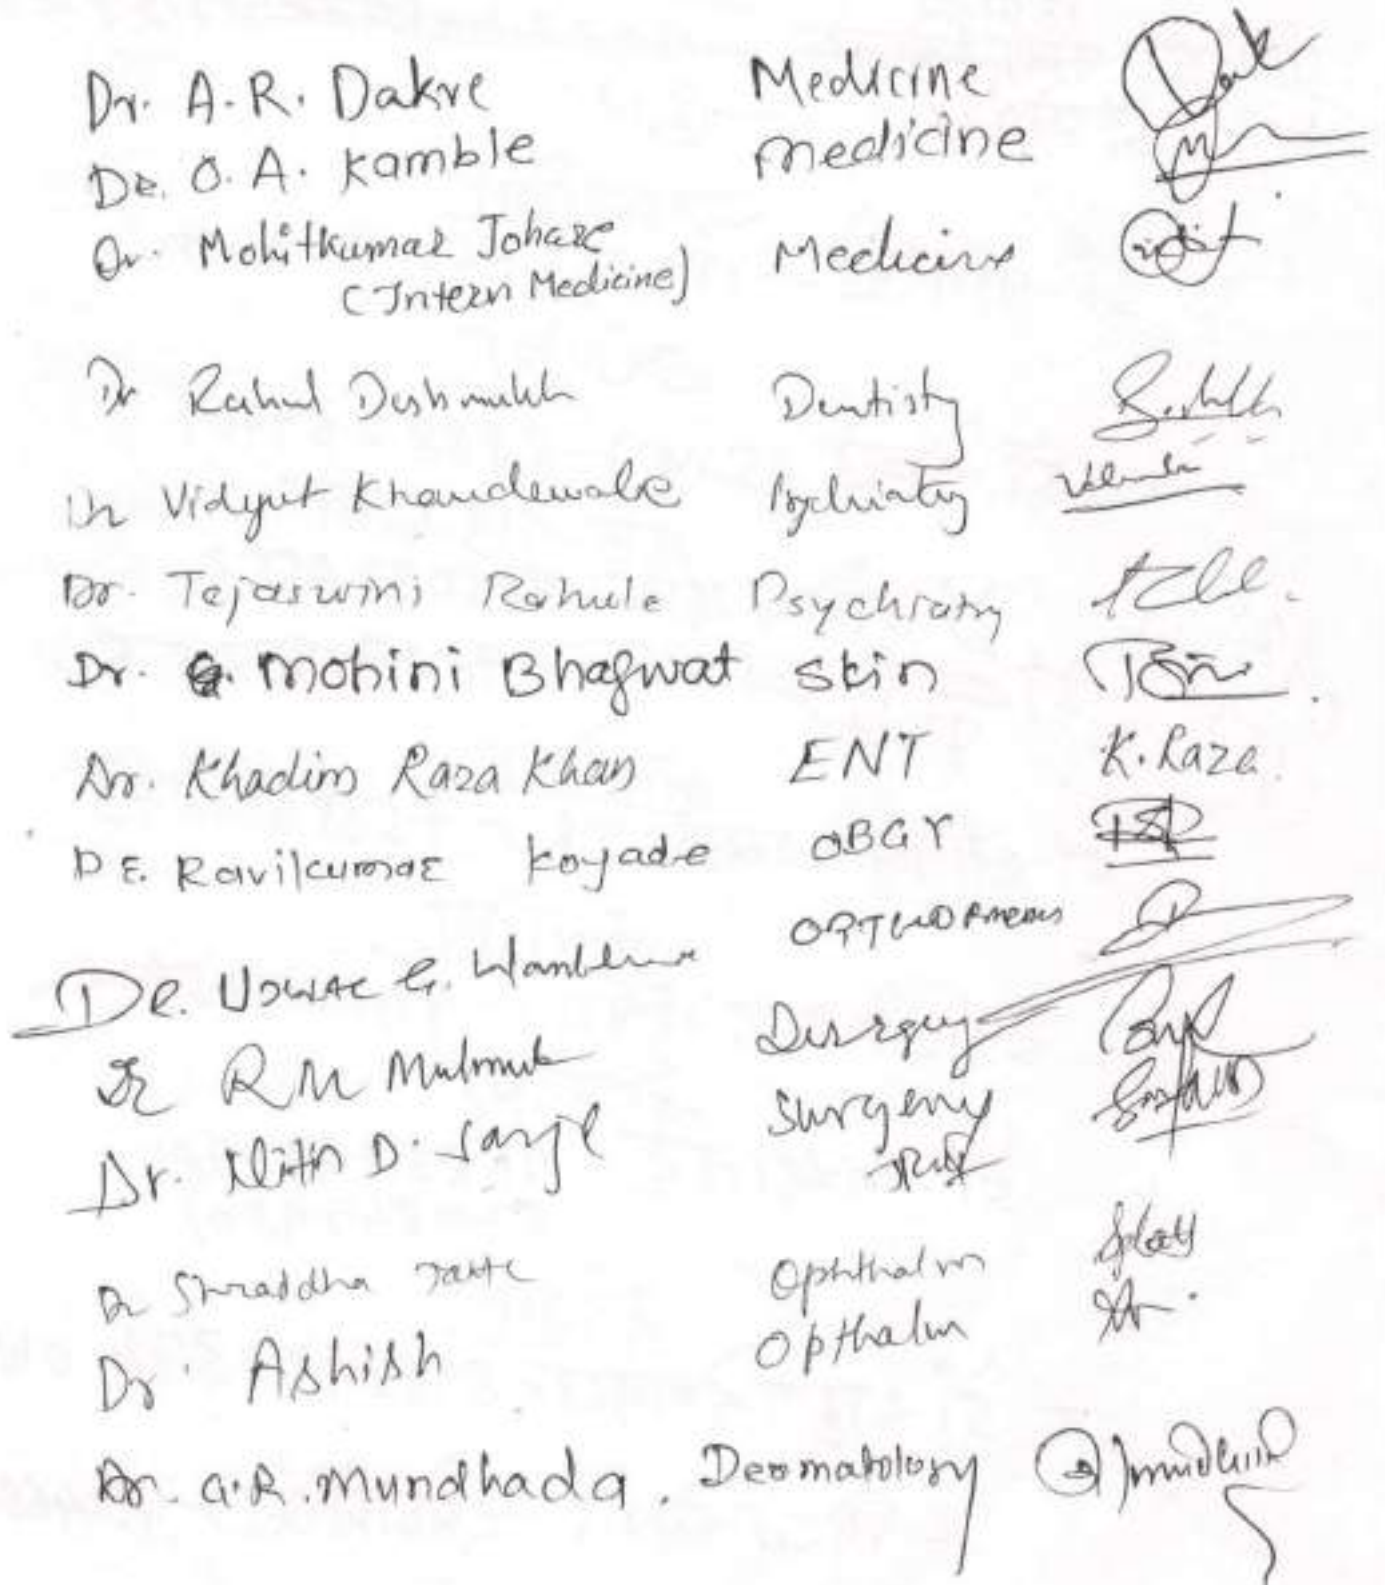 Dr. A.R. Dakre Medicine
Dr. O. A. Kamble medicine
Dr. Mohitkumar Johare Medicine
(Intern Medicine)
Dr Rahul Deshmukh Dentistry
Dr Vidyut Khandewale Psychiatry
Dr. Tejaswini Rahule Psychiatry
Dr. Mohini Bhagwat skin
Dr. Khadim Raza Khan ENT K. Raza.
DR. Ravikumar Koyade OBGY
DR. G. ORTHOPAEDICS
Dr RM Surgery
Dr. Nitin D. Surgery
Dr Shraddha Ophthalm
Dr. Ashish Opthalm
Dr. A.R. Mundhada. Dermatology